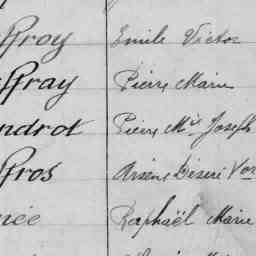 ffroy Emile Victor
ffray Pierre Marie
ndrot Pierre Mie Joseph
ffros Arsène Désiré Vor
née Raphaël Marie